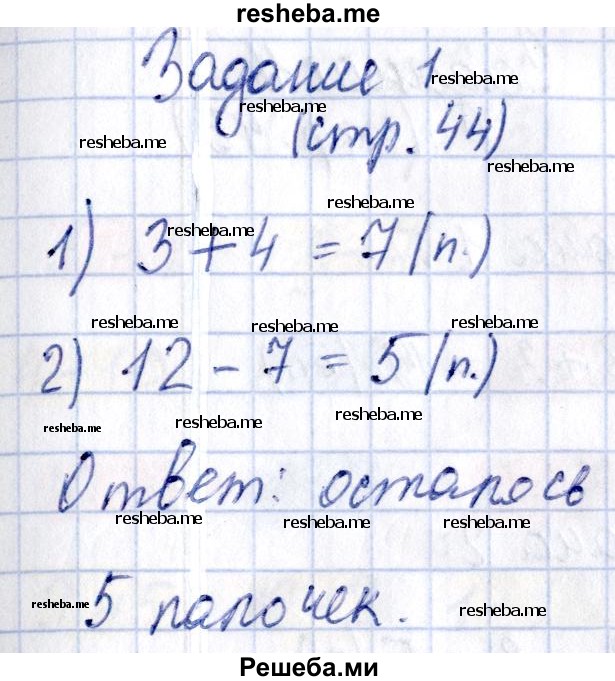 resheba.me
Задание 1
resheba.me
resheba.me
(стр. 44)
resheba.me
resheba.me
resheba.me
resheba.me
1) 3 + 4 = 7 (п.)
resheba.me
resheba.me
resheba.me
2) 12 - 7 = 5 (п.)
resheba.me
resheba.me
resheba.me
Ответ: осталось
resheba.me
resheba.me
resheba.me
5 палочек.
resheba.me
resheba.me
Решеба.ми